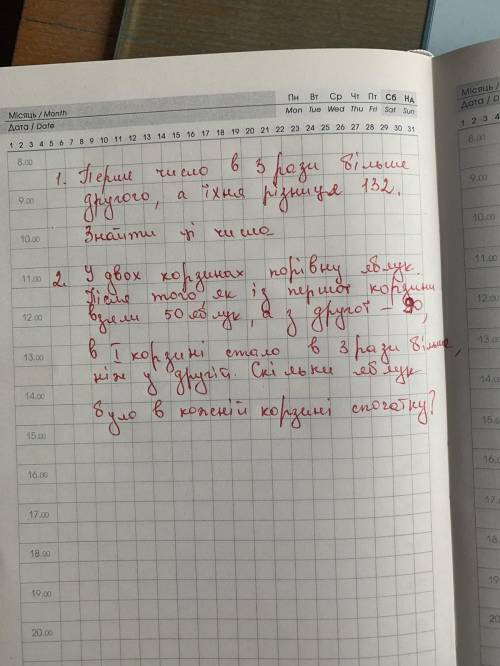 Місяць / Month
Дата / Date
Пн Вт Ср Чт Пт Сб Нд
Mon Tue Wed Thu Fri Sat Sun
1 2 3 4 5 6 7 8 9 10 11 12 13 14 15 16 17 18 19 20 21 22 23 24 25 26 27 28 29 30 31
8.00
1. Перше число в 3 рази більше
9.00 другого, а їхня різниця 132.
10.00 Знайти ці числа
11.00 2. У двох корзинах порівну яблук.
Після того як із першої корзини
12.00 взяли 50 яблук, а з другої – 90,
13.00 в I корзині стало в 3 рази більше,
ніж у другій. Скільки яблук
14.00
було в кожній корзині спочатку?
15.00
16.00
17.00
18.00
19.00
20.00
Місяць /
Дата / D
1 2 3 4
8.00
9.00
10.00
11.00
12.00
13.00
14.00
15.00